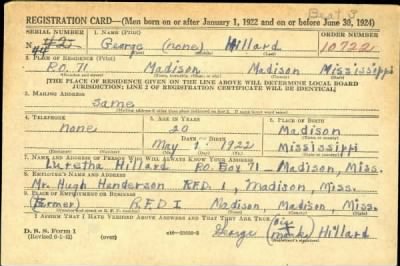 Beat 5
REGISTRATION CARD—(Men born on or after January 1, 1922 and on or before June 30, 1924)
SERIAL NUMBER 1. NAME (Print) ORDER NUMBER
#2 George (none) Hillard 10722
#4
2. PLACE OF RESIDENCE (Print)
P.O. 71 Madison Madison Mississippi
[THE PLACE OF RESIDENCE GIVEN ON THE LINE ABOVE WILL DETERMINE LOCAL BOARD
JURISDICTION; LINE 2 OF REGISTRATION CERTIFICATE WILL BE IDENTICAL]
3. MAILING ADDRESS
Same
[Mailing address if other than place indicated on line 2. If same insert word same]
4. TELEPHONE 5. AGE IN YEARS 6. PLACE OF BIRTH
none 20 Madison
DATE OF BIRTH
May 1 1922 Mississippi
7. NAME AND ADDRESS OF PERSON WHO WILL ALWAYS KNOW YOUR ADDRESS
Luretha Hillard P.O. Box 71 Madison, Miss.
8. EMPLOYER'S NAME AND ADDRESS
Mr. Hugh Henderson R.F.D. 1, Madison, Miss.
9. PLACE OF EMPLOYMENT OR BUSINESS
(Farmer) R.F.D 1 Madison, Madison, Miss.
I AFFIRM THAT I HAVE VERIFIED ABOVE ANSWERS AND THAT THEY ARE TRUE.
D. S. S. Form 1 George (his mark) Hillard
(Revised 6-9-42) (Registrant's signature)